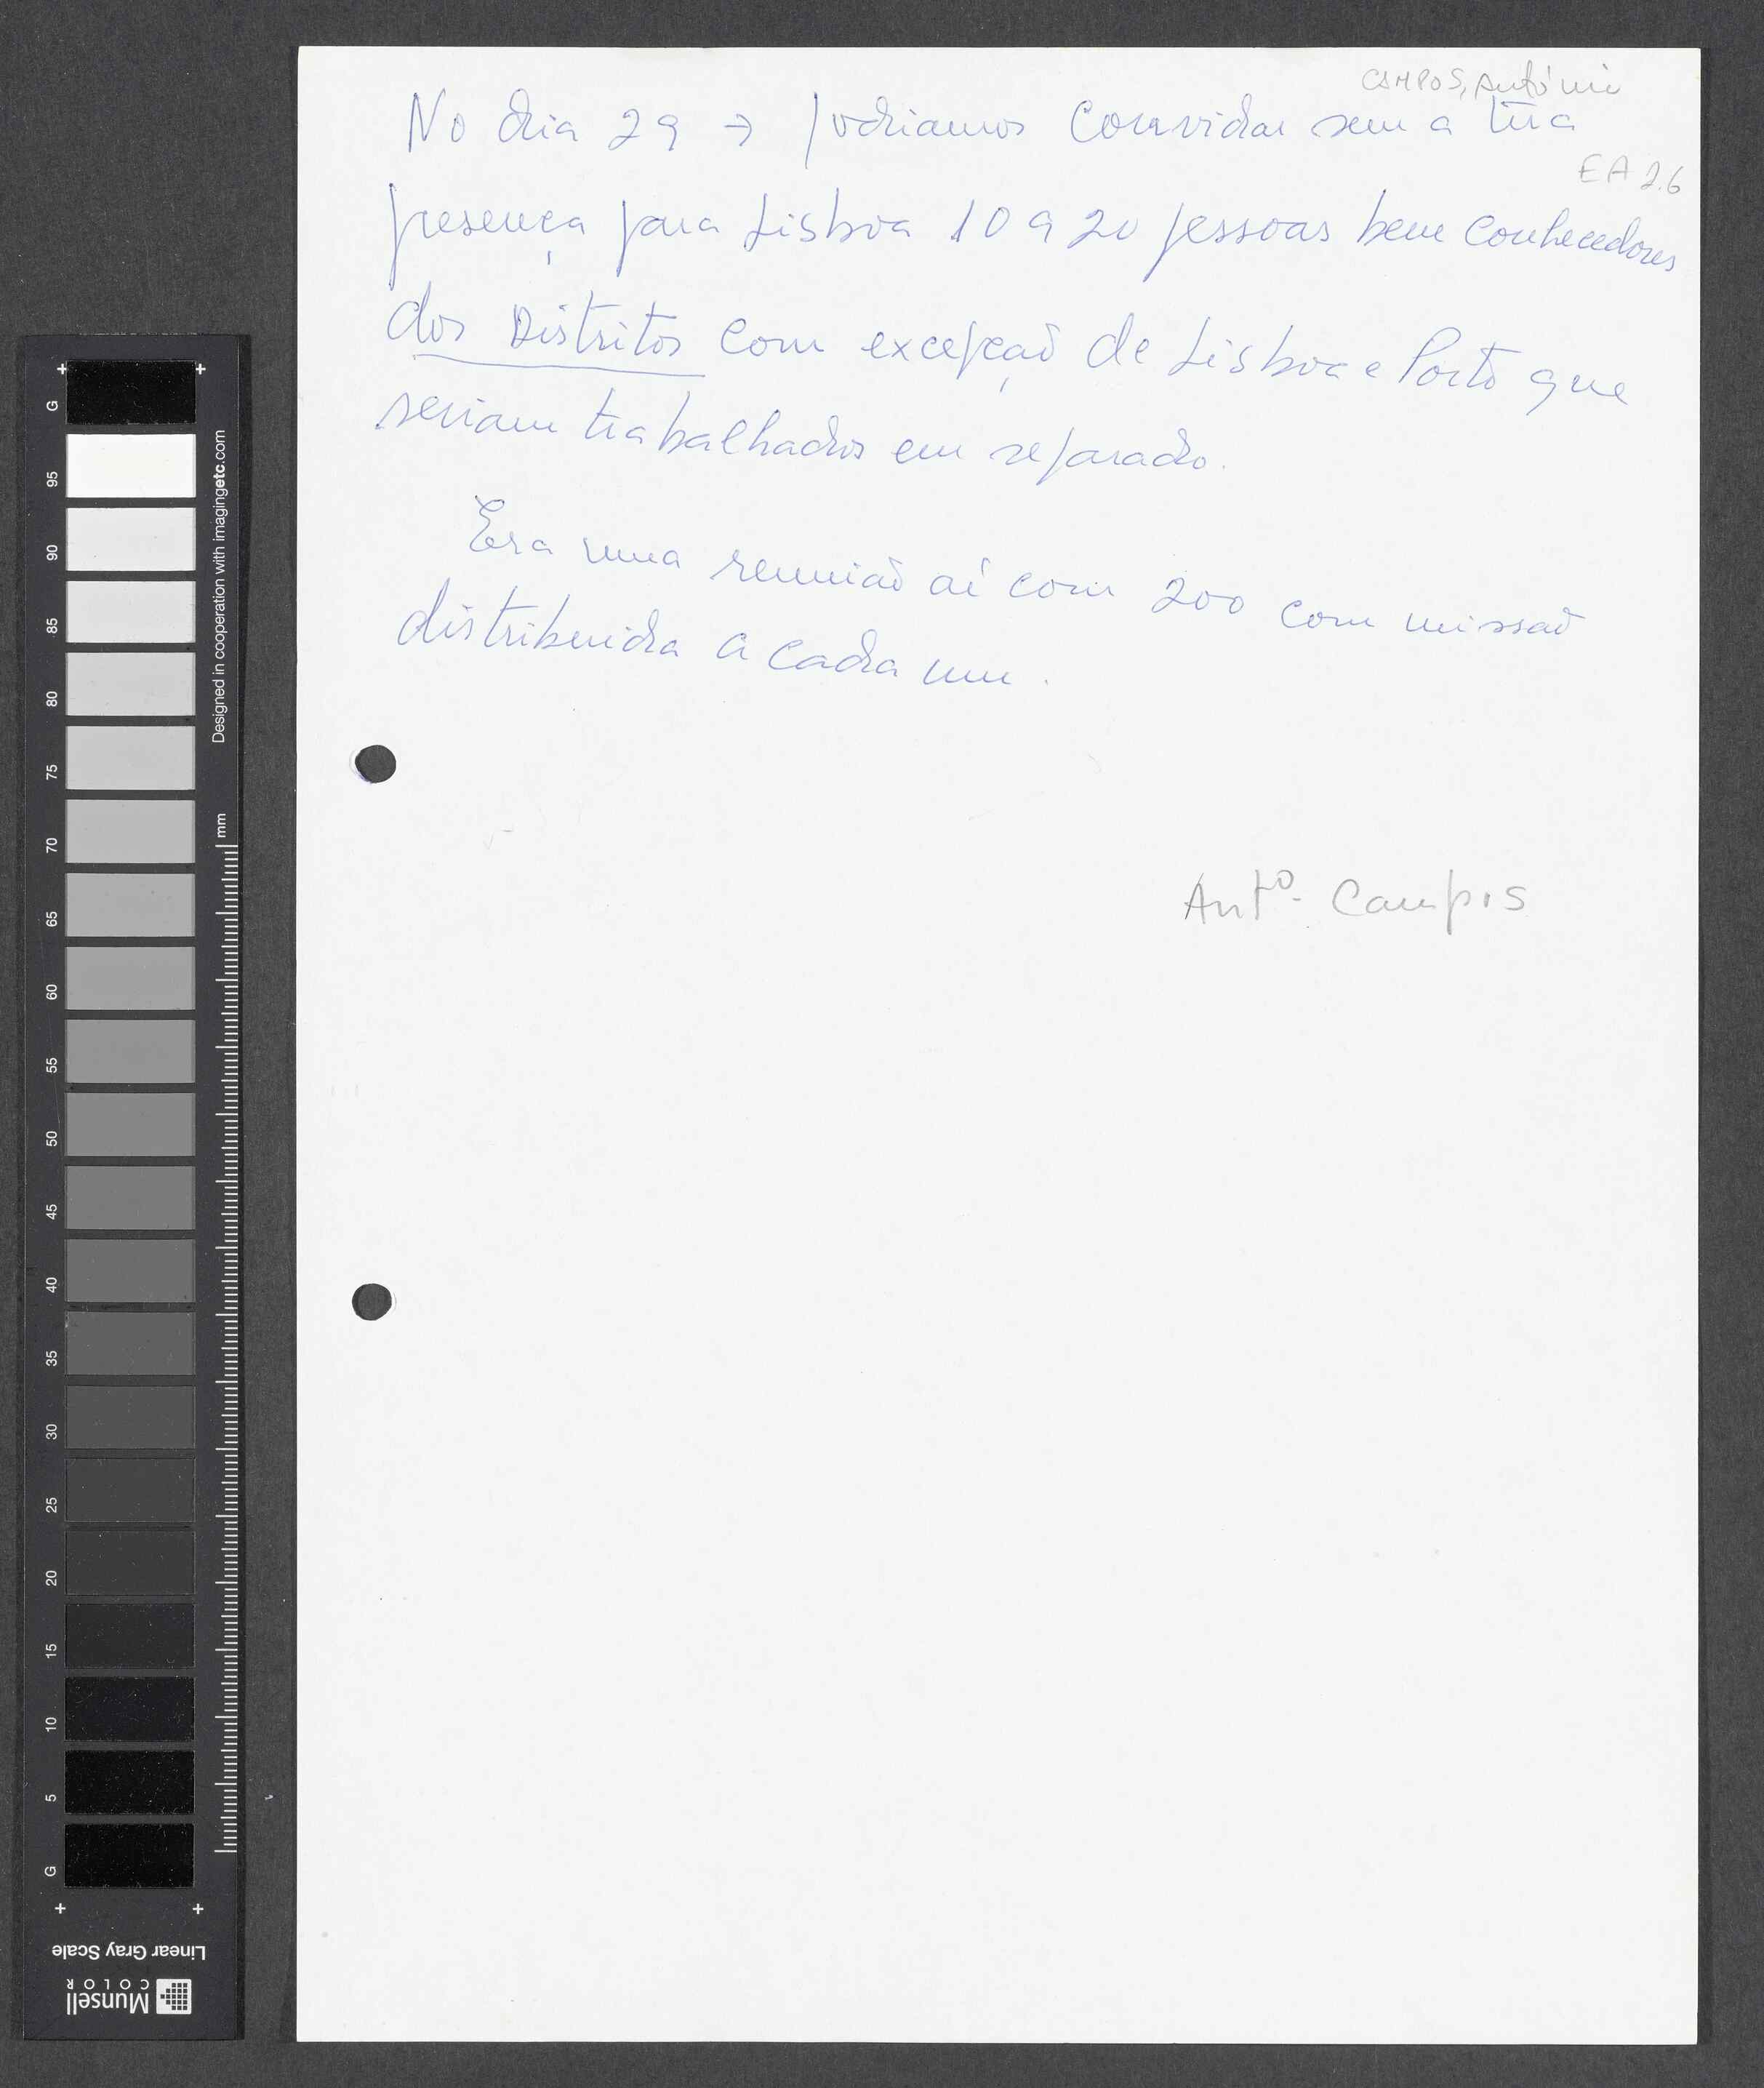 CAMPOS, António
No dia 29 → podriamos convidar sem a tua
EA 2.6
presença para Lisboa 10 a 20 pessoas bem conhecedores
dos Distritos com excepção de Lisboa e Porto que
seriam trabalhados em separado.
Era uma reunião aí com 200 com missão
distribuida a cada um.
Antº. Campos
G
95
90
85
80
75
70
65
60
55
50
45
40
35
30
25
20
15
10
5
G
Designed in cooperation with imagingetc.com
mm
Linear Gray Scale
Munsell
COLOR